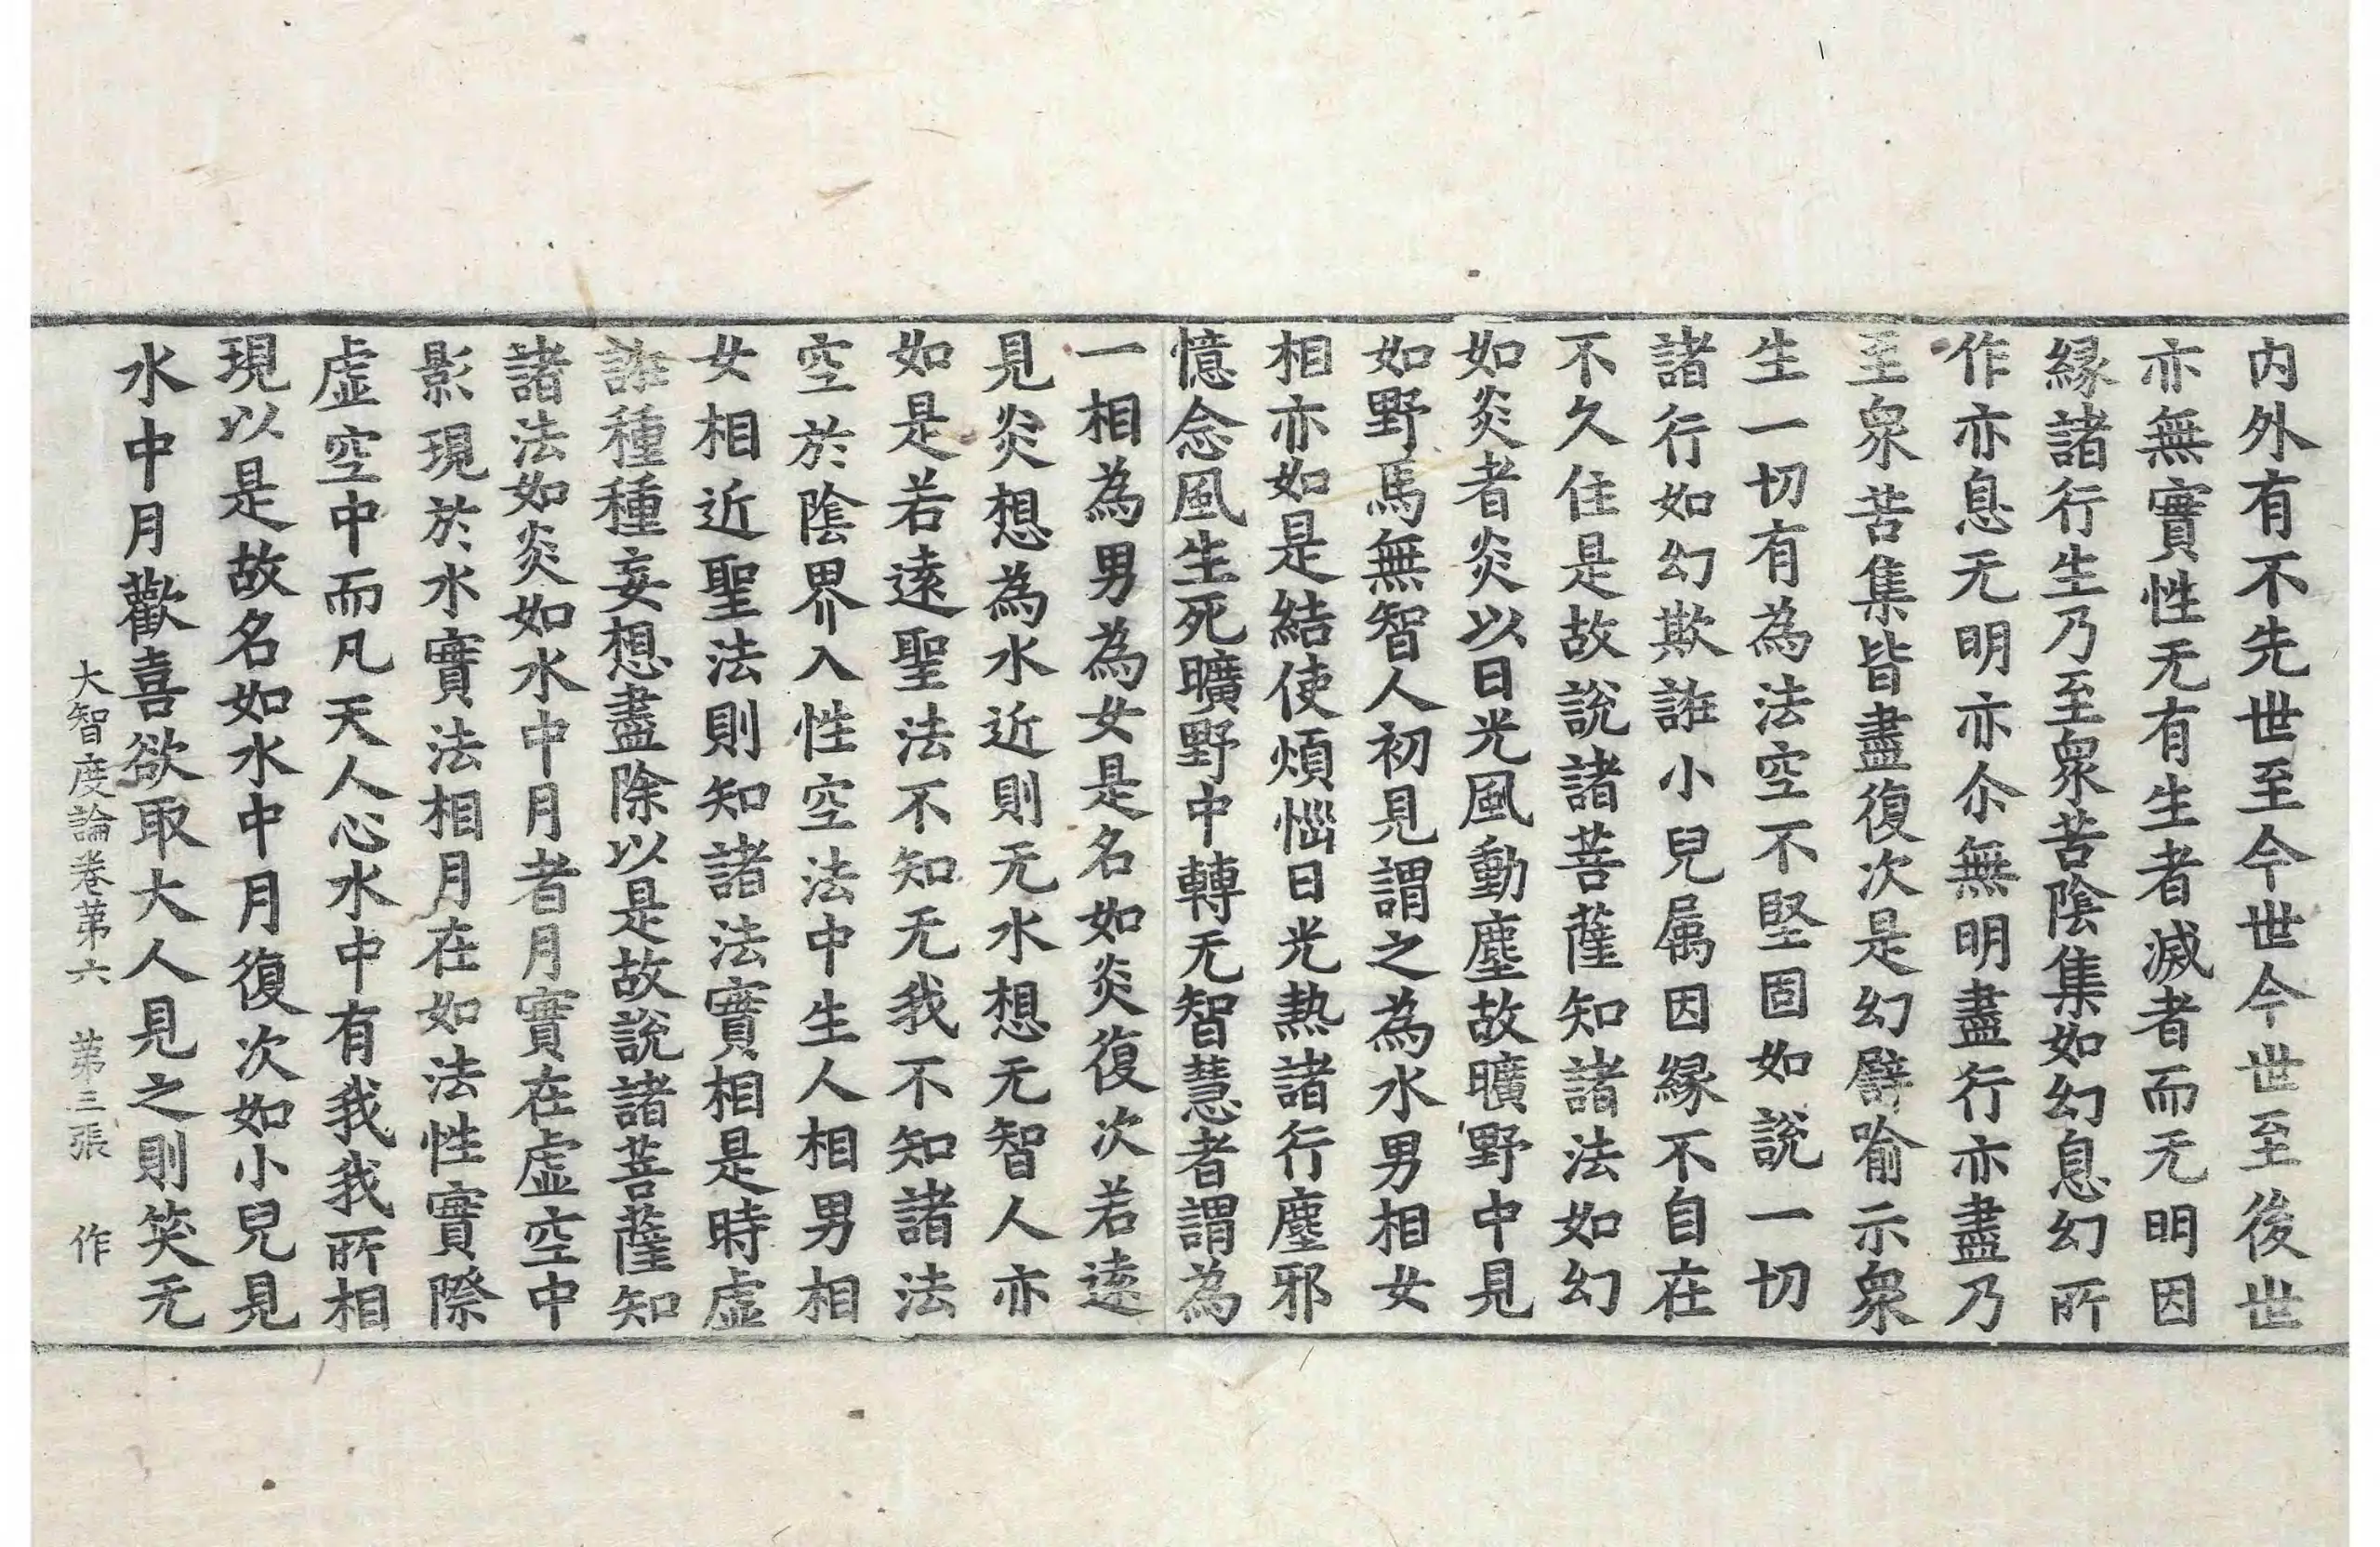 内外有不先世至今世今世至後世
亦無實性无有生者滅者而无明因
緣諸行生乃至衆苦陰集如幻息幻所
作亦息无明亦尒無明盡行亦盡乃
至衆苦集皆盡復次是幻譬喻示衆
生一切有為法空不堅固如說一切
諸行如幻欺誑小兒属因緣不自在
不久住是故說諸菩薩知諸法如幻
如炎者炎以日光風動塵故曠野中見
如野馬無智人初見謂之為水男相女
相亦如是結使煩惱日光熱諸行塵邪
憶念風生死曠野中轉无智慧者謂為
一相為男為女是名如炎復次若遠
見炎想為水近則无水想无智人亦
如是若遠聖法不知无我不知諸法
空於陰界入性空法中生人相男相
女相近聖法則知諸法實相是時虛
誑種種妄想盡除以是故說諸菩薩知
諸法如炎如水中月者月實在虛空中
影現於水實法相月在如法性實際
虛空中而凡天人心水中有我我所相
現以是故名如水中月復次如小兒見
水中月歡喜欲取大人見之則笑无
大智度論卷苐六 苐三張 作